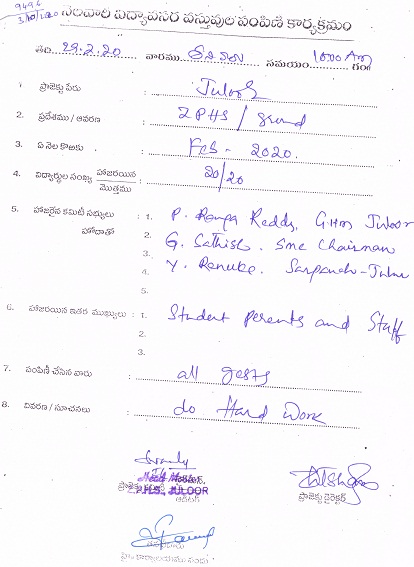 9496
3/10/2020
నెలవారి విద్యావసర వస్తువుల పంపిణి కార్యక్రమం
తేది. 29.2.20 వారము సమయం 10:00 AM గం॥
1. ప్రాజెక్టు పేరు : Juloor
2. ప్రదేశము / ఆవరణ : ZPHS / Grund
3. ఏ నెల కొఱకు : Feb - 2020.
4. విద్యార్థుల సంఖ్య హాజరయిన / మొత్తము : 20/20
5. హాజరైన కమిటీ సభ్యులు : 1. P. Ranga Reddy, GHM Juloor
హోదాతో 2. G. Sathish. Smc Chairman
3. Y. Renuka. Sarpanch - Juloor
4.
5.
6. హాజరయిన ఇతర ముఖ్యులు : 1. Student perents and Staff
2.
3.
7. పంపిణీ చేసిన వారు : all gests
8. వివరణ / సూచనలు : do Hard Work
JULOOR
ఆడిటర్
ప్రాజెక్టు డైరెక్టర్